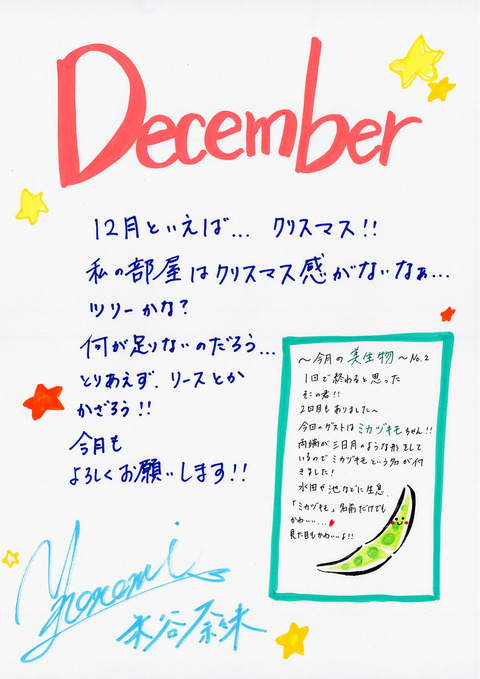 December
12月といえば... クリスマス!!
私の部屋はクリスマス感がないなぁ...
ツリーかな?
何が足りないのだろう...
とりあえず、リースとか
かざろう!!
今月も
よろしくお願いします!!
〜今月の美生物〜No.2
1回で終わると思った
そこの君!!
2回目もありました〜
今回のゲストはミカヅキモちゃん!!
両端が三日月のような形をして
いるのでミカヅキモという名が付
きました!
水田や池などに生息。
「ミカヅキモ」名前だけでも
かわいい...♥
見た目もかわいいよ!!